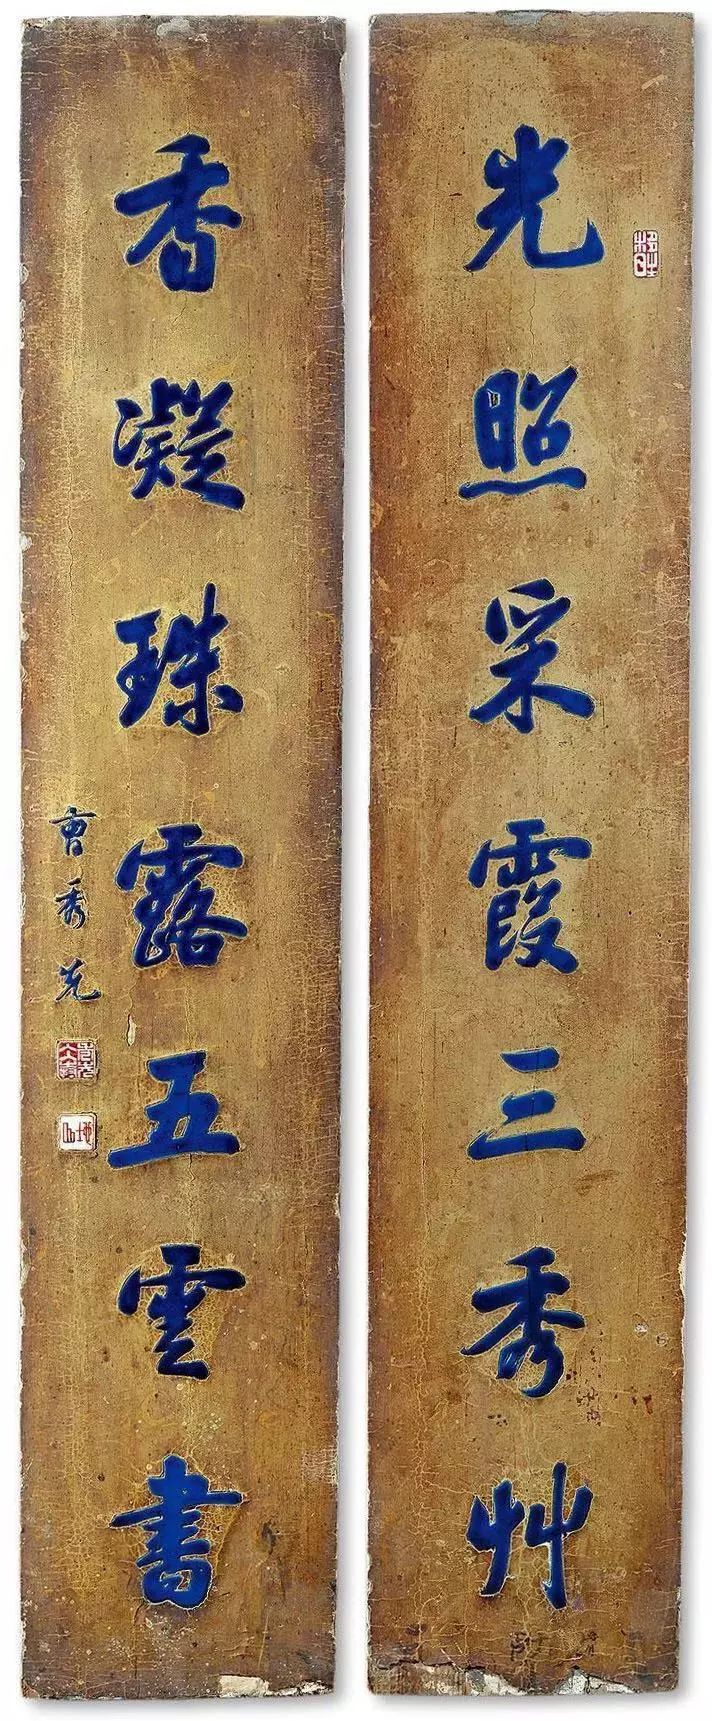 光照采霞三秀艸
香凝珠露五雲書
曹秀先